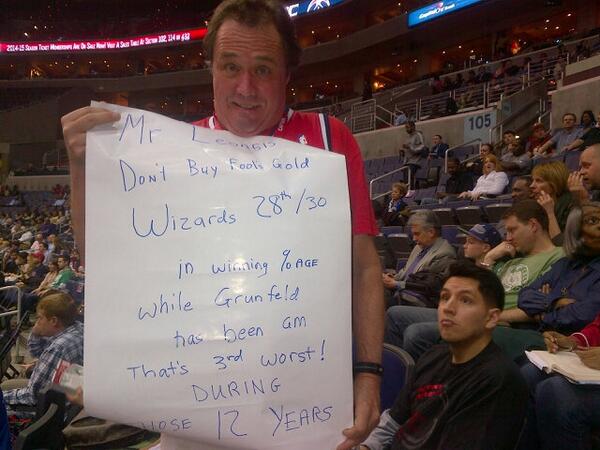 2014-15 Season Ticket Memberships Are On Sale Now! Visit A Sales Table At Section 102, 114 or 432
Capital One
105
Mr Leonsis
Don't Buy Fools Gold
Wizards 28th/30
in winning %AGE
while Grunfeld
has been GM
That's 3rd worst!
DURING
HOSE 12 YEARS